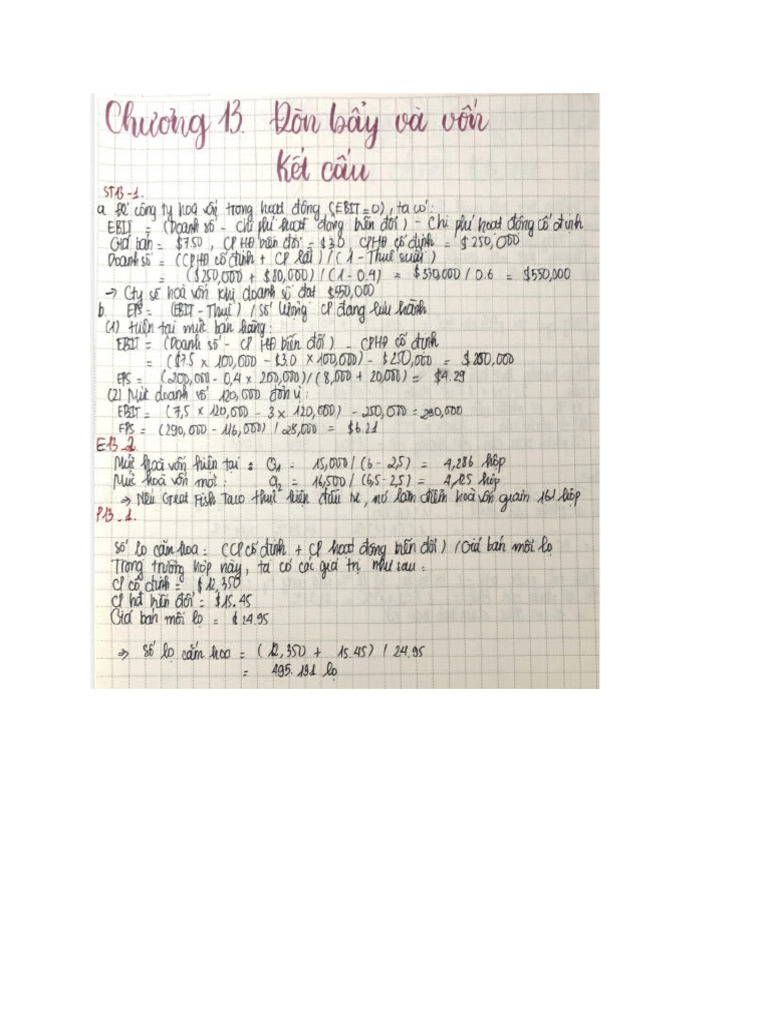 Chương 13. Đòn bẩy và vốn
Kết cấu
ST13-1.
a. Để công ty hoà vốn trong hoạt động (EBIT=0), ta có:
EBIT = (Doanh số - Chi phí hoạt động biến đổi) - Chi phí hoạt động cố định
Giá bán = $7.50, CP HĐ biến đổi = $3.0 CPHĐ cố định = $250,000
Doanh số = (CPHĐ cố định + CP lãi) / (1 - Thuế suất)
= ($250,000 + $80,000) / (1 - 0.4) = $330,000 / 0.6 = $550,000
→ Cty sẽ hoà vốn khi doanh số đạt $550,000
b. EPS = (EBIT - Thuế) / Số lượng CP đang lưu hành
(1) Hiện tại mức bán hàng:
EBIT = (Doanh số - CP HĐ biến đổi) - CPHĐ cố định
= ($7.5 × 100,000 - $3.0 × 100,000) - $250,000 = $200,000
EPS = (200,000 - 0,4 × 200,000) / (8,000 + 20,000) = $4.29
(2) Mức doanh số 120,000 đơn vị:
EBIT = (7,5 × 120,000 - 3 × 120,000) - 250,000 = 290,000
EPS = (290,000 - 116,000) / 28,000 = $6.21
E13-2
Mức hoà vốn hiện tại: Q1 = 15,000 / (6 - 2,5) = 4,286 hộp
Mức hoà vốn mới: Q2 = 16,500 / (6,5 - 2,5) = 4,125 hộp
→ Nếu Great Fish Taco thực hiện đầu tư, nó làm điểm hoà vốn giảm 161 hộp
P13-1.
Số lọ cắm hoa = (CP cố định + CP hoạt động biến đổi) / Giá bán mỗi lọ
Trong trường hợp này, ta có các giá trị như sau:
CP cố định = $12,350
CP hđ biến đổi = $15.45
Giá bán mỗi lọ = $24.95
⇒ Số lọ cắm hoa = (12,350 + 15.45) / 24.95
= 495.191 lọ